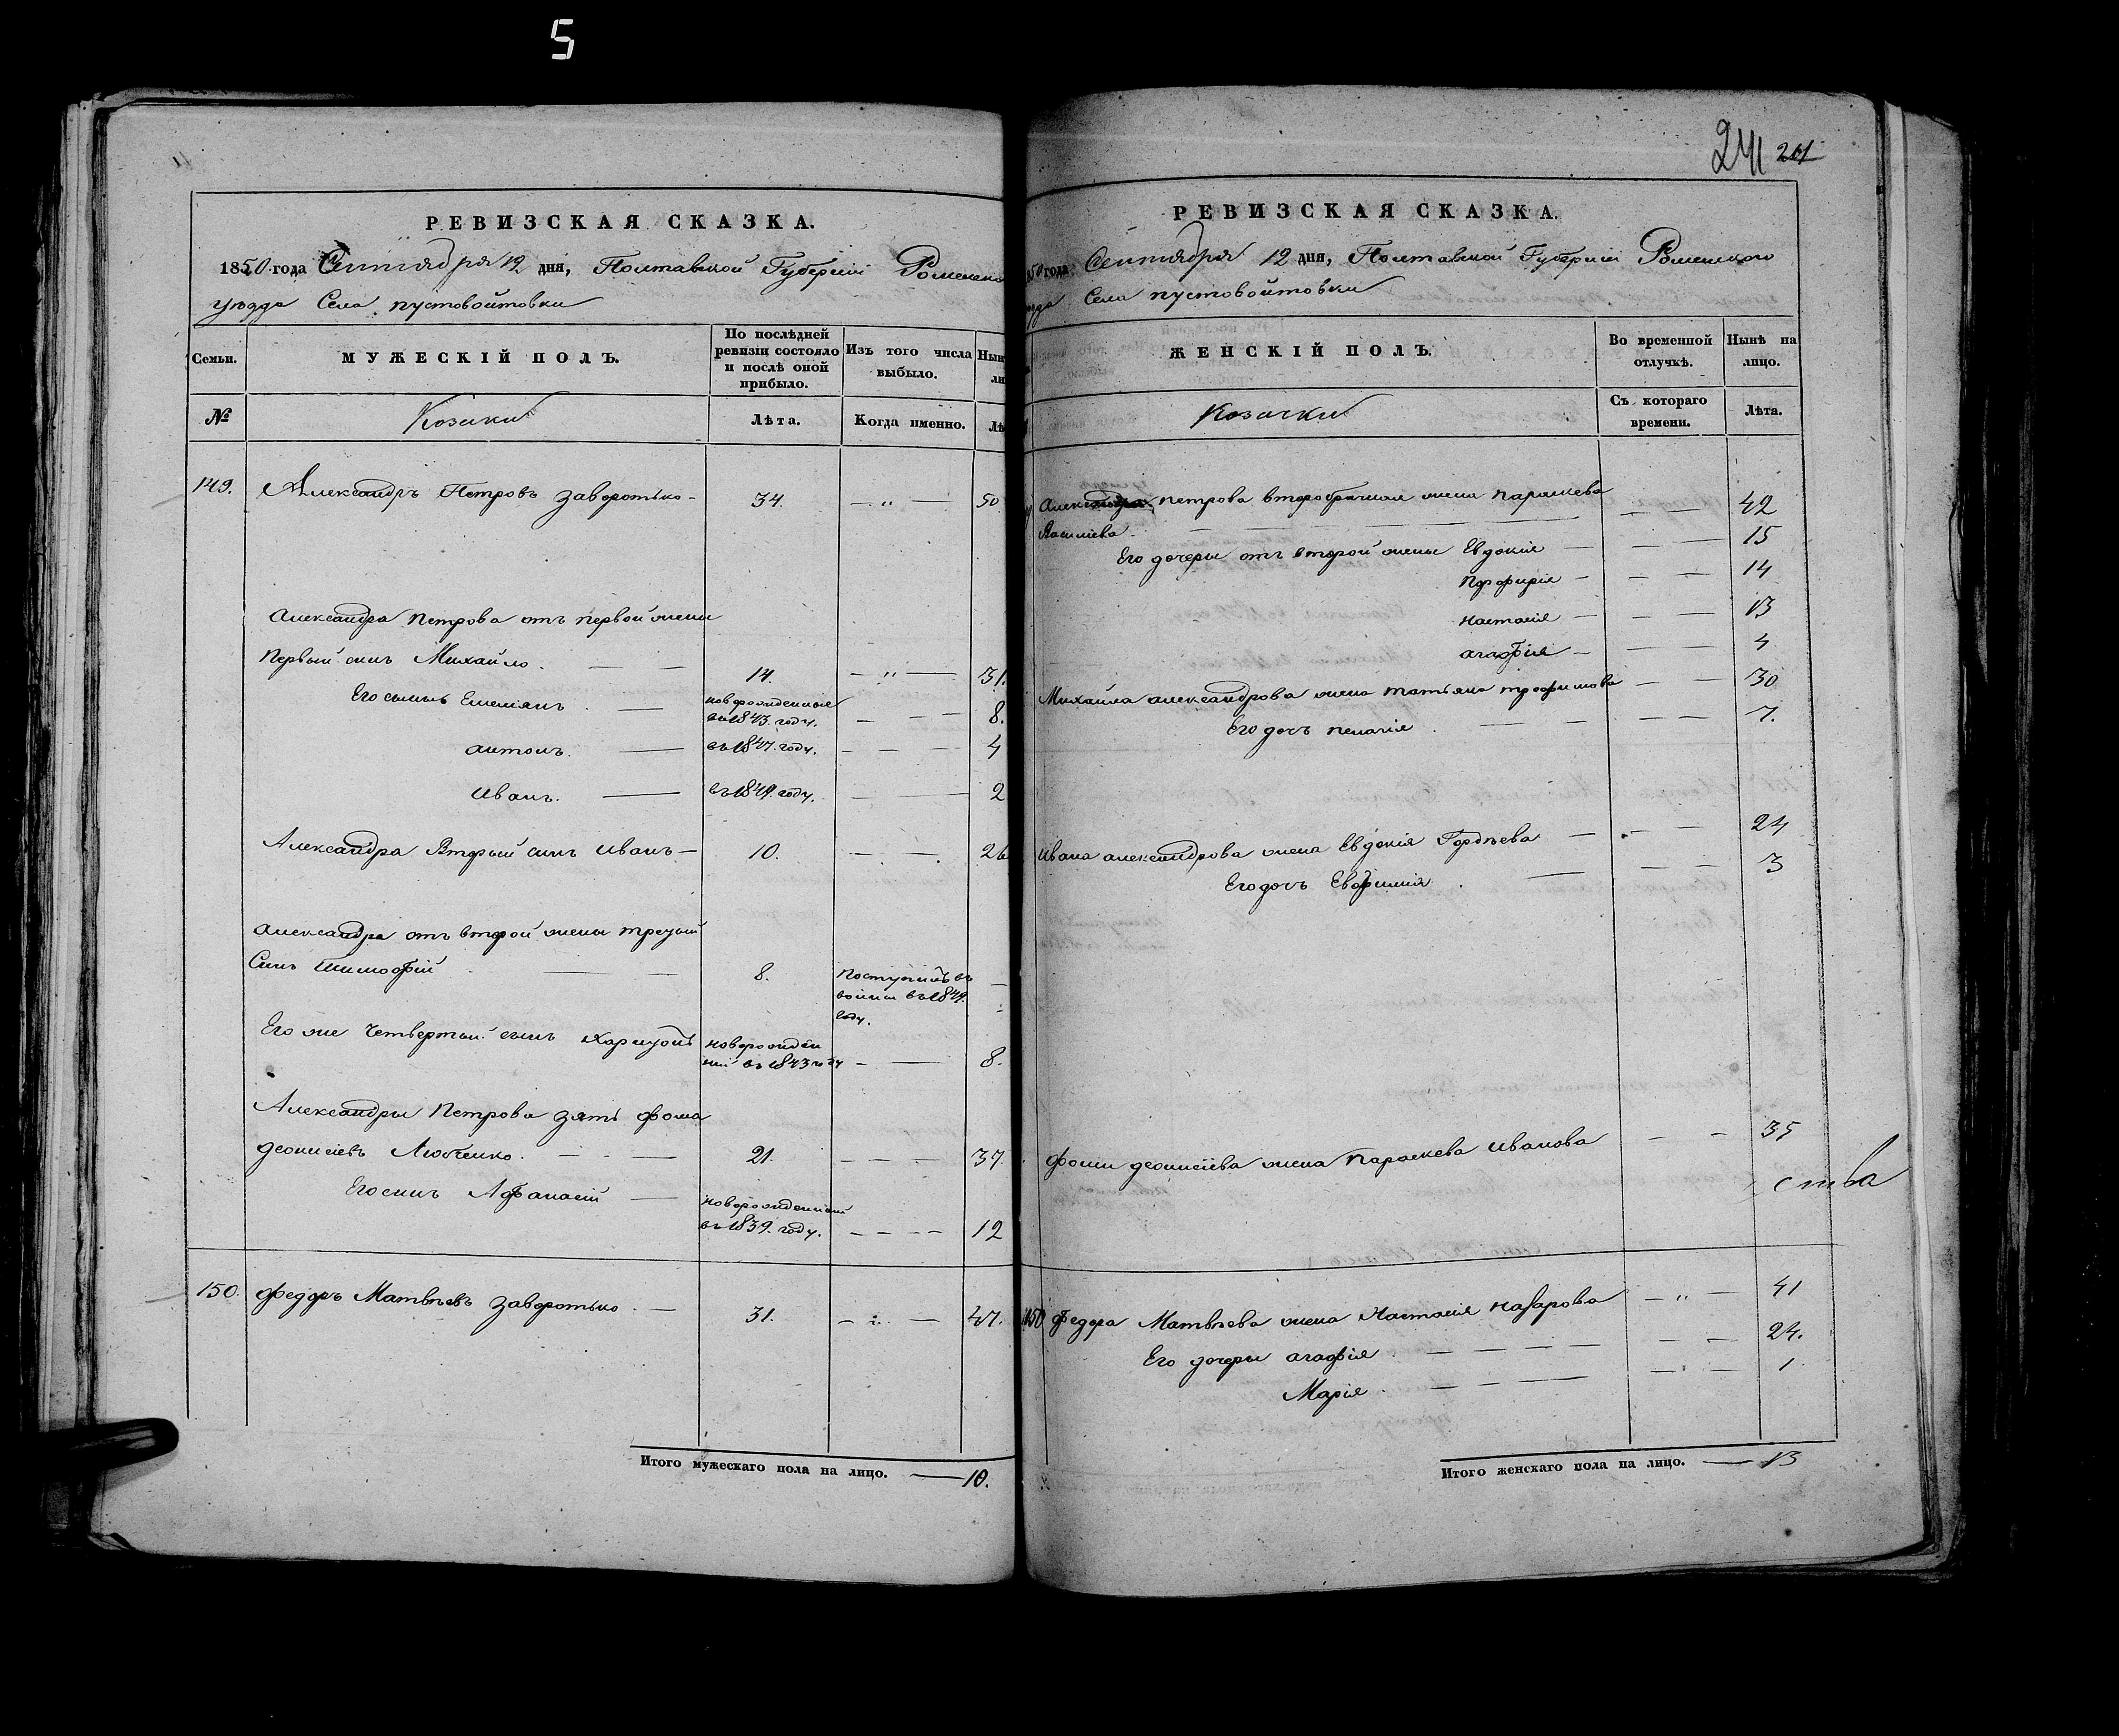 5
РЕВИЗСКАЯ СКАЗКА.
1850 года Сентября 12 дня, Полтавской Губерніи Роменско
уѣзда Села пустовойтовки
Семьи.
МУЖЕСКІЙ ПОЛЪ.
По послѣдней ревизіи состояло и послѣ оной прибыло.
Изъ того числа выбыло.
№
Козаки
Лѣта.
Когда именно.
149. Александръ Петровъ Заворотько 34. — " — 50
Александра Петрова отъ первой жены
Первый сынъ Михайло. — — 14. — " — 31.
Его сыны Емелянъ — новорожденные
въ 1843. году. — — — 8.
антонъ. — въ 1847. году. — — — 4
Иванъ. — въ 1849. году. — — 2
Александра Вторый сынъ Иванъ — 10. — — 26
Александра отъ второй жены третий
Сынъ Тимофій — — 8. Поступилъ въ —
воины въ 1849.
году.
Его же Четвертый сынъ Харитонъ новорожден
ний въ 1843 году — — 8.
Александры Петрова зять фома
деонисіевъ Любченко. — — 21. — — — 37.
Его сынъ Афанасій — новорожденный
въ 1839. году. — — — — 12
150. федоръ Матвѣевъ Заворотько. — 31. — — 47.
Итого мужескаго пола на лицо. — 10.
241 201
РЕВИЗСКАЯ СКАЗКА.
50 года Сентября 12 дня, Полтавской Губерніи Роменского
Села пустовойтовки
ЖЕНСКІЙ ПОЛЪ.
Во временной отлучкѣ.
Нынѣ на лицо.
Козачки
Съ котораго времени.
Лѣта.
Александра петрова второбрачная жена параскева — — 42
Василіева — — — — —
Его дочеры отъ второй жены Евдокія — — — 15
Порфирія — — — 14
настасія — — — 13
агафія — — — 4
Михайла александрова жена татьяна трофимова — — 30
Его дочь пелагія — — — — 7.
Ивана александрова жена Евдокія Гордѣева — — — 24
Его дочь Евфимия — — — 3
фомы деонисіева жена Параскева Иванова — — 35
ства
150 федора Матвѣева жена Настасія Назарова — " — 41
Его дочеры агафія — — — — — — 24.
Марія — — — — — — 1
Итого женскаго пола на лицо. — 13